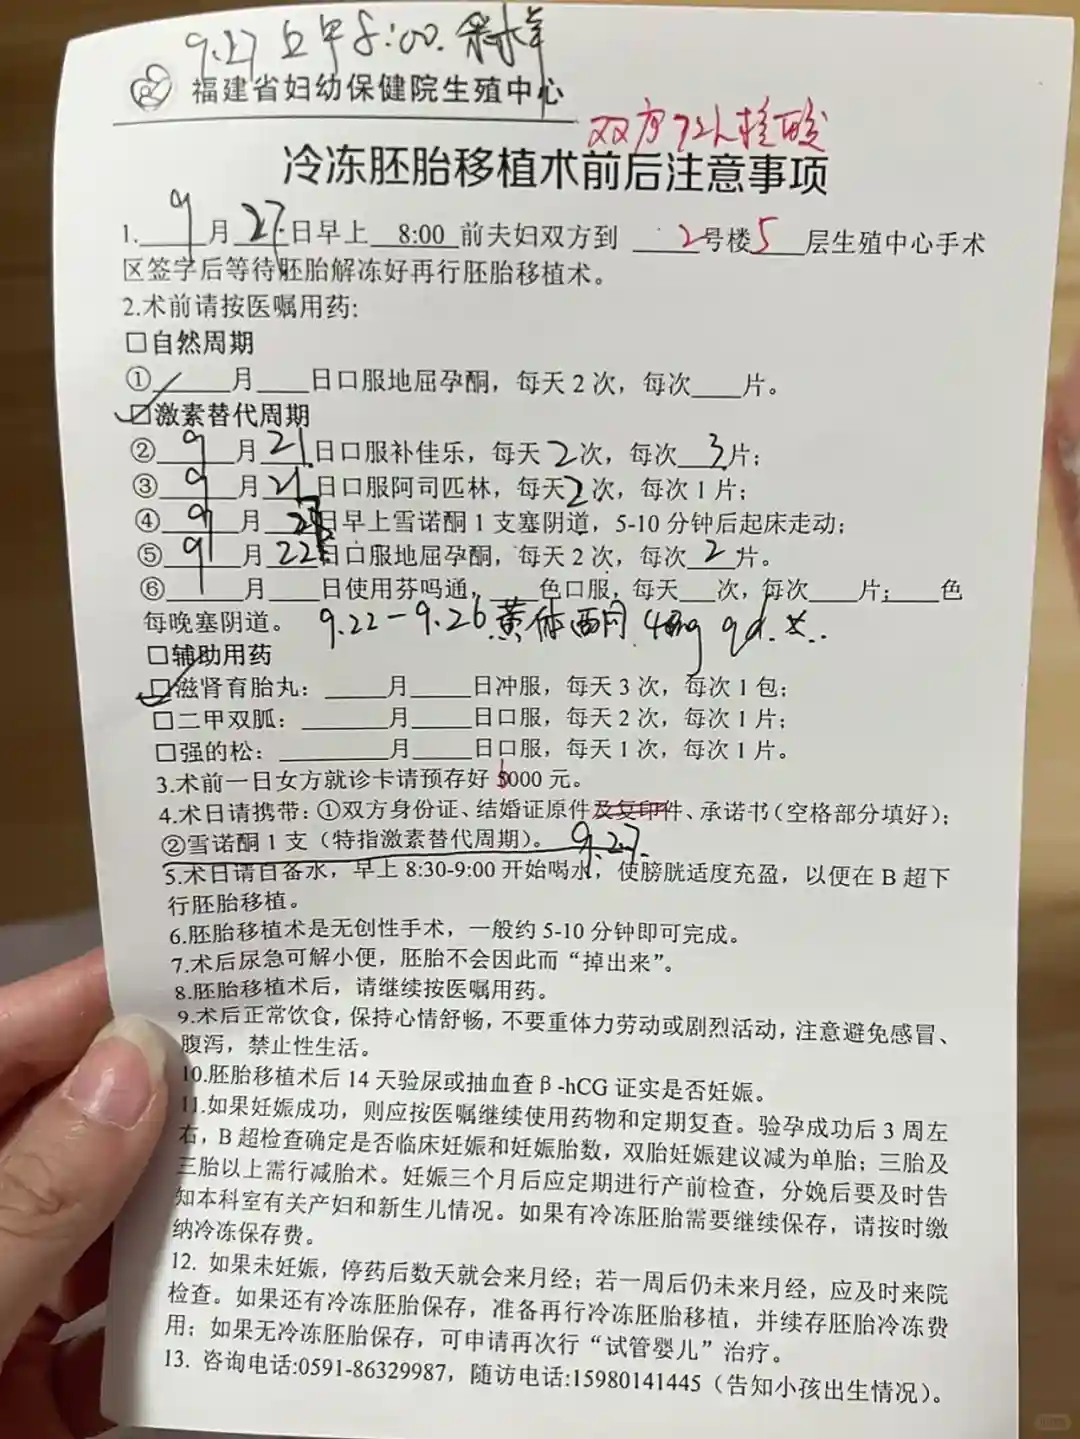 9.27 上午8:00.
福建省妇幼保健院生殖中心
双方72h核酸
冷冻胚胎移植术前后注意事项
1.9月27日早上 8:00 前夫妻双方到 2号楼5层生殖中心手术
区签字后等待胚胎解冻好再行胚胎移植术。
2.术前请按医嘱用药:
☐自然周期
①____月____日口服地屈孕酮，每天2次，每次____片。
☑激素替代周期
②9月21日口服补佳乐，每天2次，每次3片；
③9月21日口服阿司匹林，每天2次，每次1片；
④9月日早上雪诺酮1支塞阴道，5-10分钟后起床走动；
⑤9月22日口服地屈孕酮，每天2次，每次2片。
⑥____月____日使用芬吗通，____色口服，每天____次，每次____片；____色
每晚塞阴道。 9.22-9.26黄体酮 qd.
☐辅助用药
☑滋肾育胎丸：____月____日冲服，每天3次，每次1包；
☐二甲双胍：____月____日口服，每天2次，每次1片；
☐强的松：____月____日口服，每天1次，每次1片。
3.术前一日女方就诊卡请预存好6000元。
4.术日请携带：①双方身份证、结婚证原件及复印件、承诺书（空格部分填好）；
②雪诺酮1支（特指激素替代周期）。 9.27.
5.术日请自备水，早上8:30-9:00开始喝水，使膀胱适度充盈，以便在B超下
行胚胎移植。
6.胚胎移植术是无创性手术，一般约5-10分钟即可完成。
7.术后尿急可解小便，胚胎不会因此而“掉出来”。
8.胚胎移植术后，请继续按医嘱用药。
9.术后正常饮食，保持心情舒畅，不要重体力劳动或剧烈活动，注意避免感冒、
腹泻，禁止性生活。
10.胚胎移植术后14天验尿或抽血查β-hCG证实是否妊娠。
11.如果妊娠成功，则应按医嘱继续使用药物和定期复查。验孕成功后3周左
右，B超检查确定是否临床妊娠和妊娠胎数，双胎妊娠建议减为单胎；三胎及
三胎以上需行减胎术。妊娠三个月后应定期进行产前检查，分娩后要及时告
知本科室有关产妇和新生儿情况。如果有冷冻胚胎需要继续保存，请按时缴
纳冷冻保存费。
12. 如果未妊娠，停药后数天就会来月经；若一周后仍未来月经，应及时来院
检查。如果还有冷冻胚胎保存，准备再行冷冻胚胎移植，并续存胚胎冷冻费
用；如果无冷冻胚胎保存，可申请再次行“试管婴儿”治疗。
13. 咨询电话:0591-86329987，随访电话:15980141445（告知小孩出生情况）。